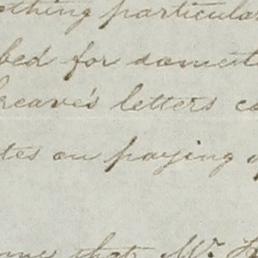 othing particular
bed for domest
reave's letters co
tes on paying
that Mr. H